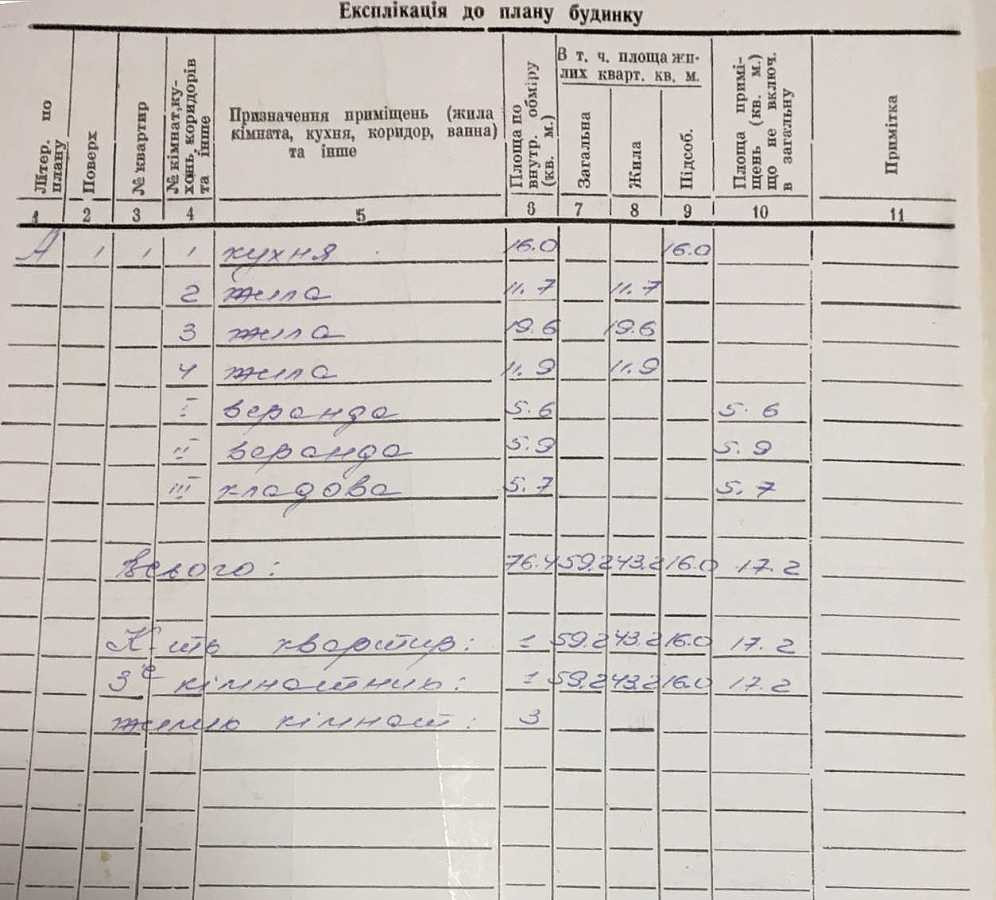 Експлікація до плану будинку
Літер. по плану
Поверх
№ квартир
№ кімнат, ку-
хонь, коридорів
та інше
Призначення приміщень (жила
кімната, кухня, коридор, ванна)
та інше
Площа по
внутр. обміру
(кв. м.)
В т. ч. площа жи-
лих кварт. кв. м.
Загальна
Жила
Підсоб.
Площа примі-
щень (кв. м.)
що не включ.
в загальну
Примітка
1 2 3 4 5 6 7 8 9 10 11
А 1 1 1 кухня 16.0 16.0
2 жила 11.7 11.7
3 жила 19.6 19.6
4 жила 11.9 11.9
I веранда 5.6 5.6
II веранда 5.9 5.9
III кладова 5.7 5.7
Всього: 76.4 59.2 43.2 16.0 17.2
К-сть квартир: 1 59.2 43.2 16.0 17.2
3 кімнатних: 1 59.2 43.2 16.0 17.2
жилих кімнат: 3